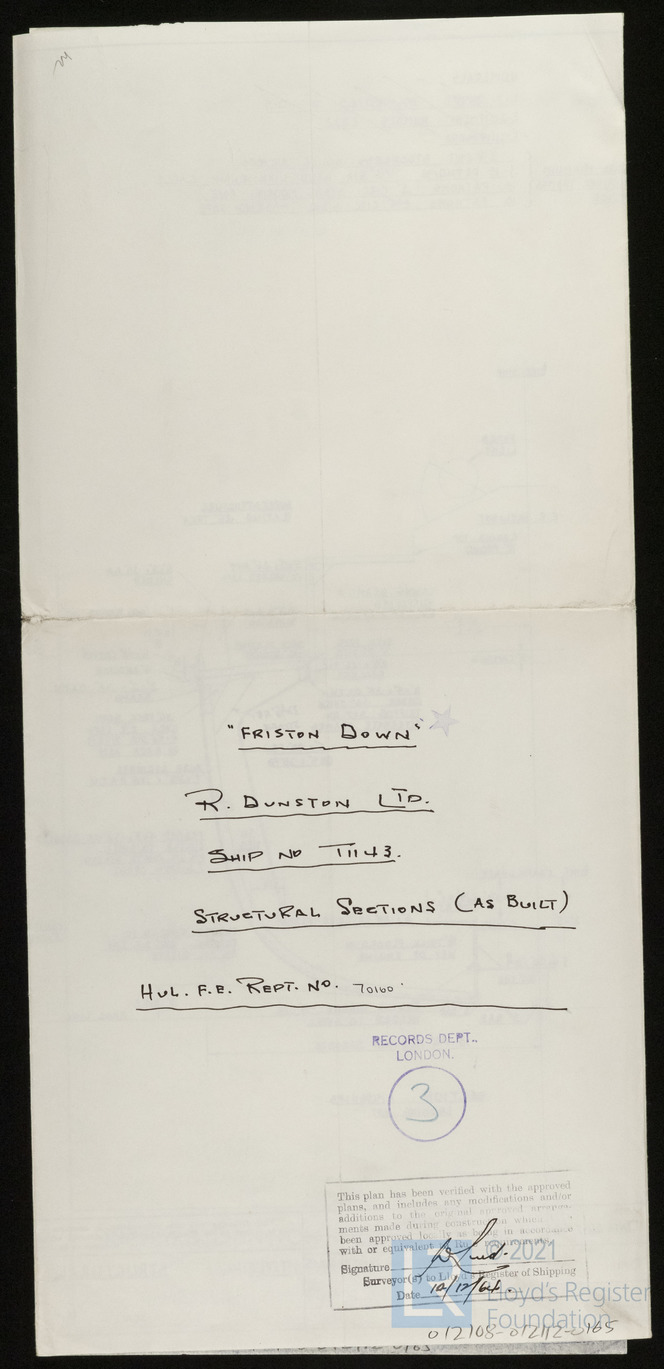 "FRISTON DOWN"
R. DUNSTON LTD.
SHIP NO T1143.
STRUCTURAL SECTIONS (AS BUILT)
HUL. F.E. REPT. NO. 70160.
RECORDS DEPT..
LONDON.
3
This plan has been verified with the approved
plans, and includes any modifications and/or
additions to the original approved
ments made during construction which
been approved locally as being in accordance
with or equivalent to Rule requirements.
Signature
Surveyor(s) to Lloyd's Register of Shipping
Date 10/12/64.
LR © 2021
Lloyd's Register
Foundation
012108-012112-0165